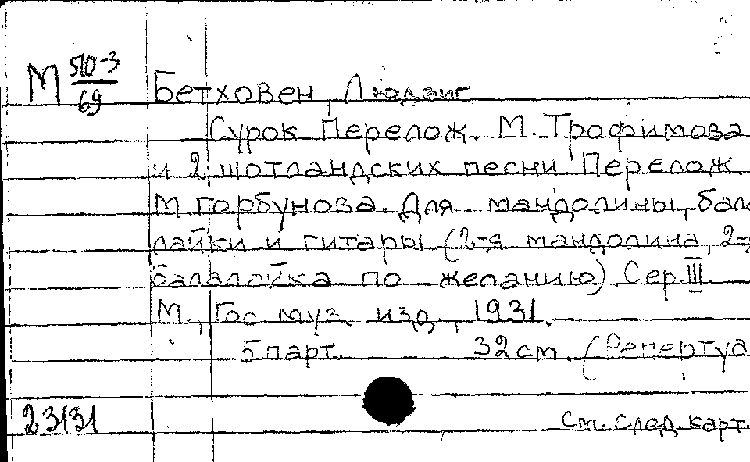 М 510-3/69
Бетховен, Людвиг
Сурок Перелож. М. Трофимова
и 2 шотландских песни Перелож
М Горбунова. Для мандолины, бала
лайки и гитары (2-я мандолина, 2-я
балалайка по желанию) Сер. III
М., Гос муз. изд., 1931.
5 парт. 32 cm. (Репертуа
23131
См. след карт.